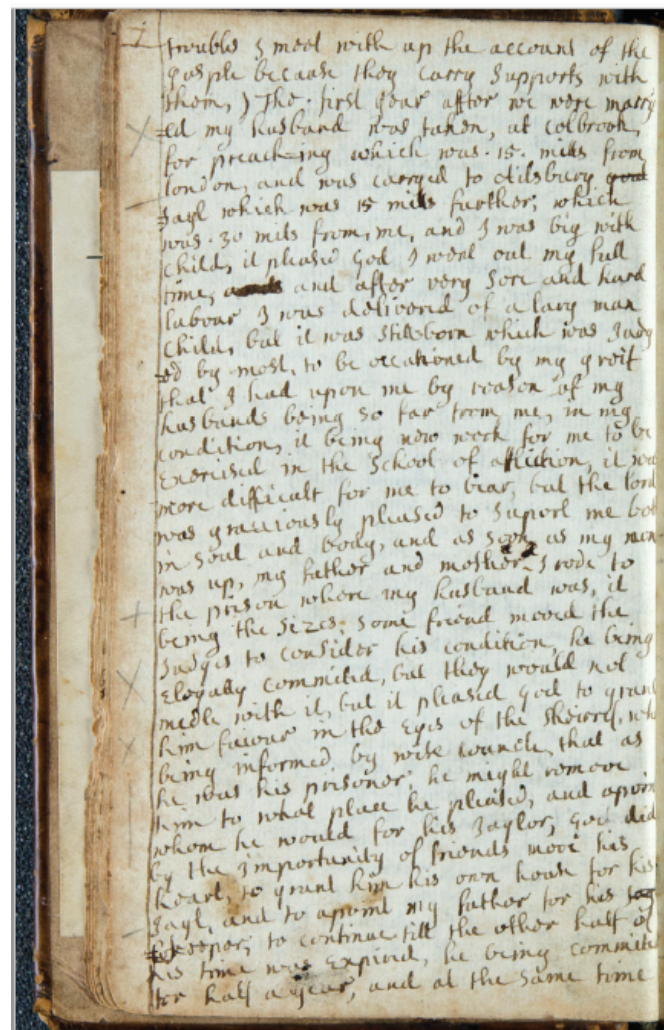 7
troubls I meet with up the account of the
gosple because they carry Supports with
them,) The first year after we were marry
=ed my husband was taken, at Colbrook,
for preaching which was . 15 . mils from
london, and was carryed to Ailsbury
Jayl which was 15 mils further, which
was . 30 mils from, me, and I was big with
child, it pleased God I went out my full
time, and after very Sore and hard
labour I was delivered of a larg man
Child, but it was Stilborn which was Judg
=ed by most, to be occationed by my greif
that I had upon me by reason of my
husbands being so far from me, in my
condition, it being new work for me to be
Exercised in the School of afliction, it was
more difficalt for me to bear, but the lord
was graciously pleased to Suport me both
in Soul and body, and as soon as my mon
was up, my father and mother I rode to
the prison where my husband was, it
being the Sizes; Some friend moved the
Judges to consider his condition, he being
Elegally commited, but they would not
medle with it, but it pleased god to grant
him favour in the Eyes of the Sheirref, who
being informed by wise councle, that as
he was his prisoner he might remove
him to what place he pleased, and apoint
whom he would for his Jaylor, god did
by the Importunity of friends move his
heart, to grant him his own house for his
Jayl, and to apoint my father for his
keeper, to continue till the other half of
his time was Expired, he being commited
for half a year, and at the same time